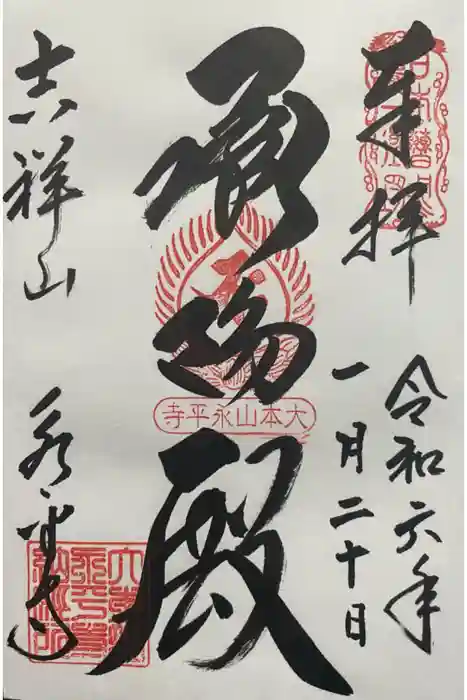 奉拝
令和六年
一月二十日
承陽殿
大本山永平寺
吉祥山
永平寺